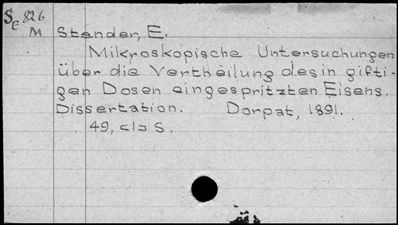 Sc 826
M Stender, E.
Mikroskopische Untersuchungen
über die Vertheilung des in gifti-
gen Dosen eingespritzten Eisens.
Dissertation. Dorpat, 1891.
49, S.